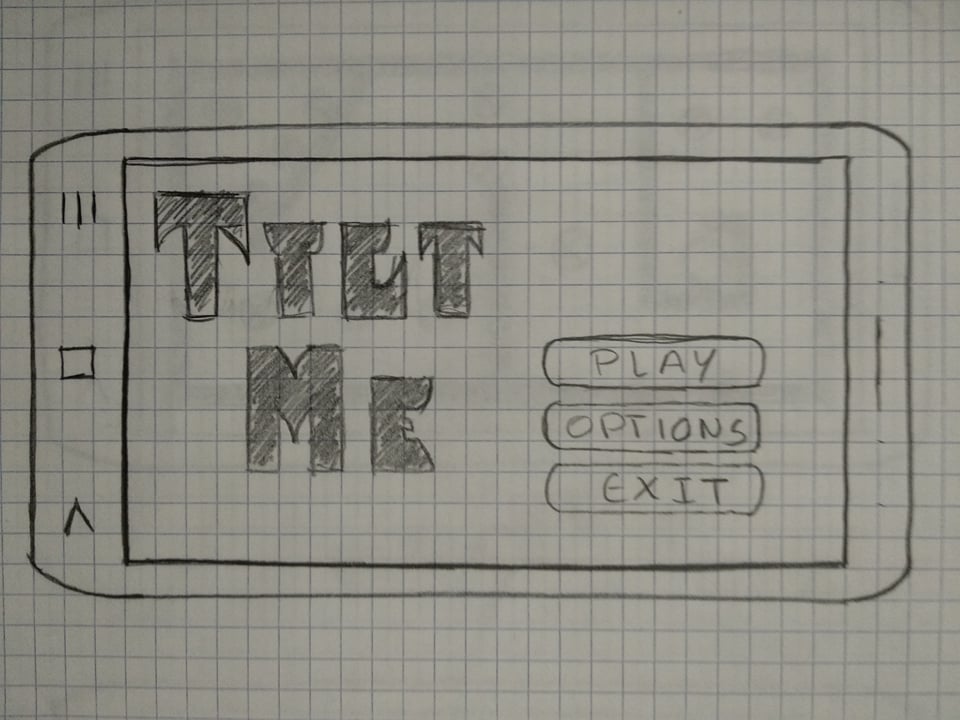 TILT
ME
PLAY
OPTIONS
EXIT